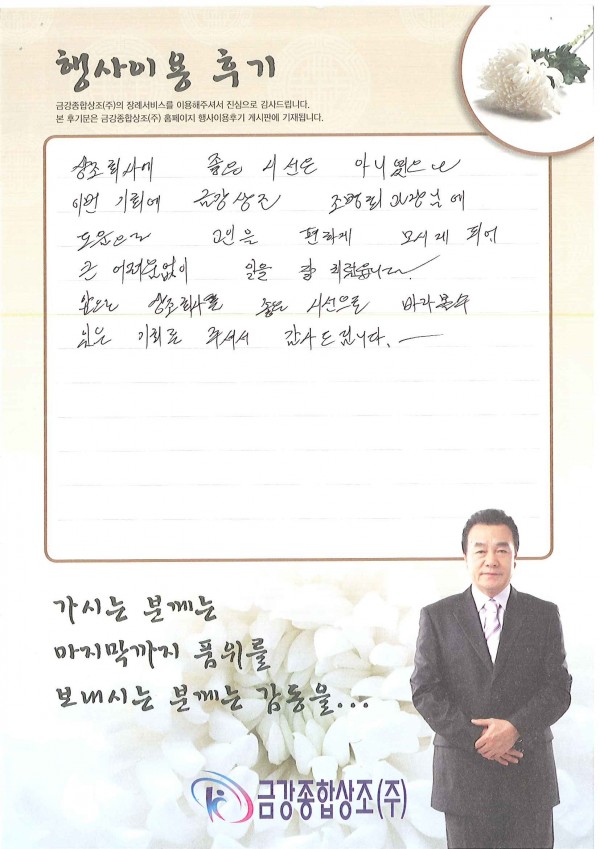 행사이용 후기
금강종합상조(주)의 장례서비스를 이용해주셔서 진심으로 감사드립니다.
본 후기분은 금강종합상조(주) 홈페이지 행사이용후기 게시판에 기재됩니다.
상조회사에 좋은 시선은 아니였으나
이번 기회에 금강상조 조명희 과장님에
도움으로 고인을 편하게 모시게 되어
큰 어려움없이 일을 잘 치뤘습니다.
앞으로 상조회사를 좋은 시선으로 바라볼수
있은 기회로 주셔서 감사드립니다.
가시는 분께는
마지막까지 품위를
보내시는 분께는 감동을...
금강종합상조(주)